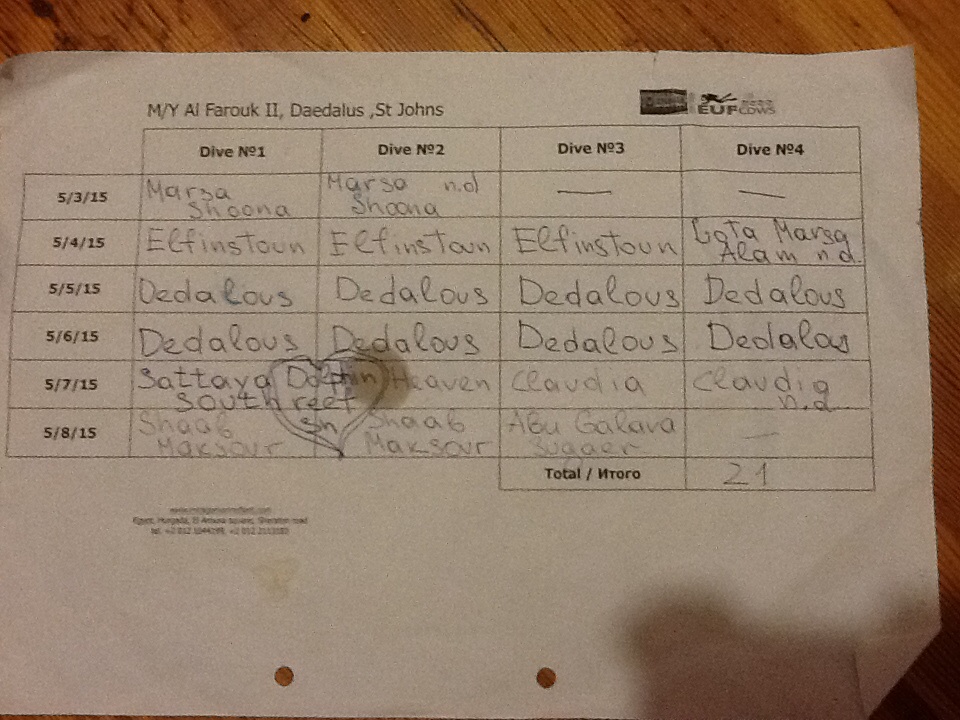 M/Y Al Farouk II, Daedalus ,St Johns
EUF
Dive №1 Dive №2 Dive №3 Dive №4
5/3/15 Marsa Shoona Marsa n.d Shoona — —
5/4/15 Elfinstoun Elfinstoun Elfinstoun Gota Marsa Alam n.d.
5/5/15 Dedalous Dedalous Dedalous Dedalous
5/6/15 Dedalous Dedalous Dedalous Dedalous
5/7/15 Sattaya Dolphin Heaven Claudia Claudia
south reef n.d.
5/8/15 Shaab Sh Shaab Abu Galava —
Maksour Maksour Sugaer
Total / Итого 21